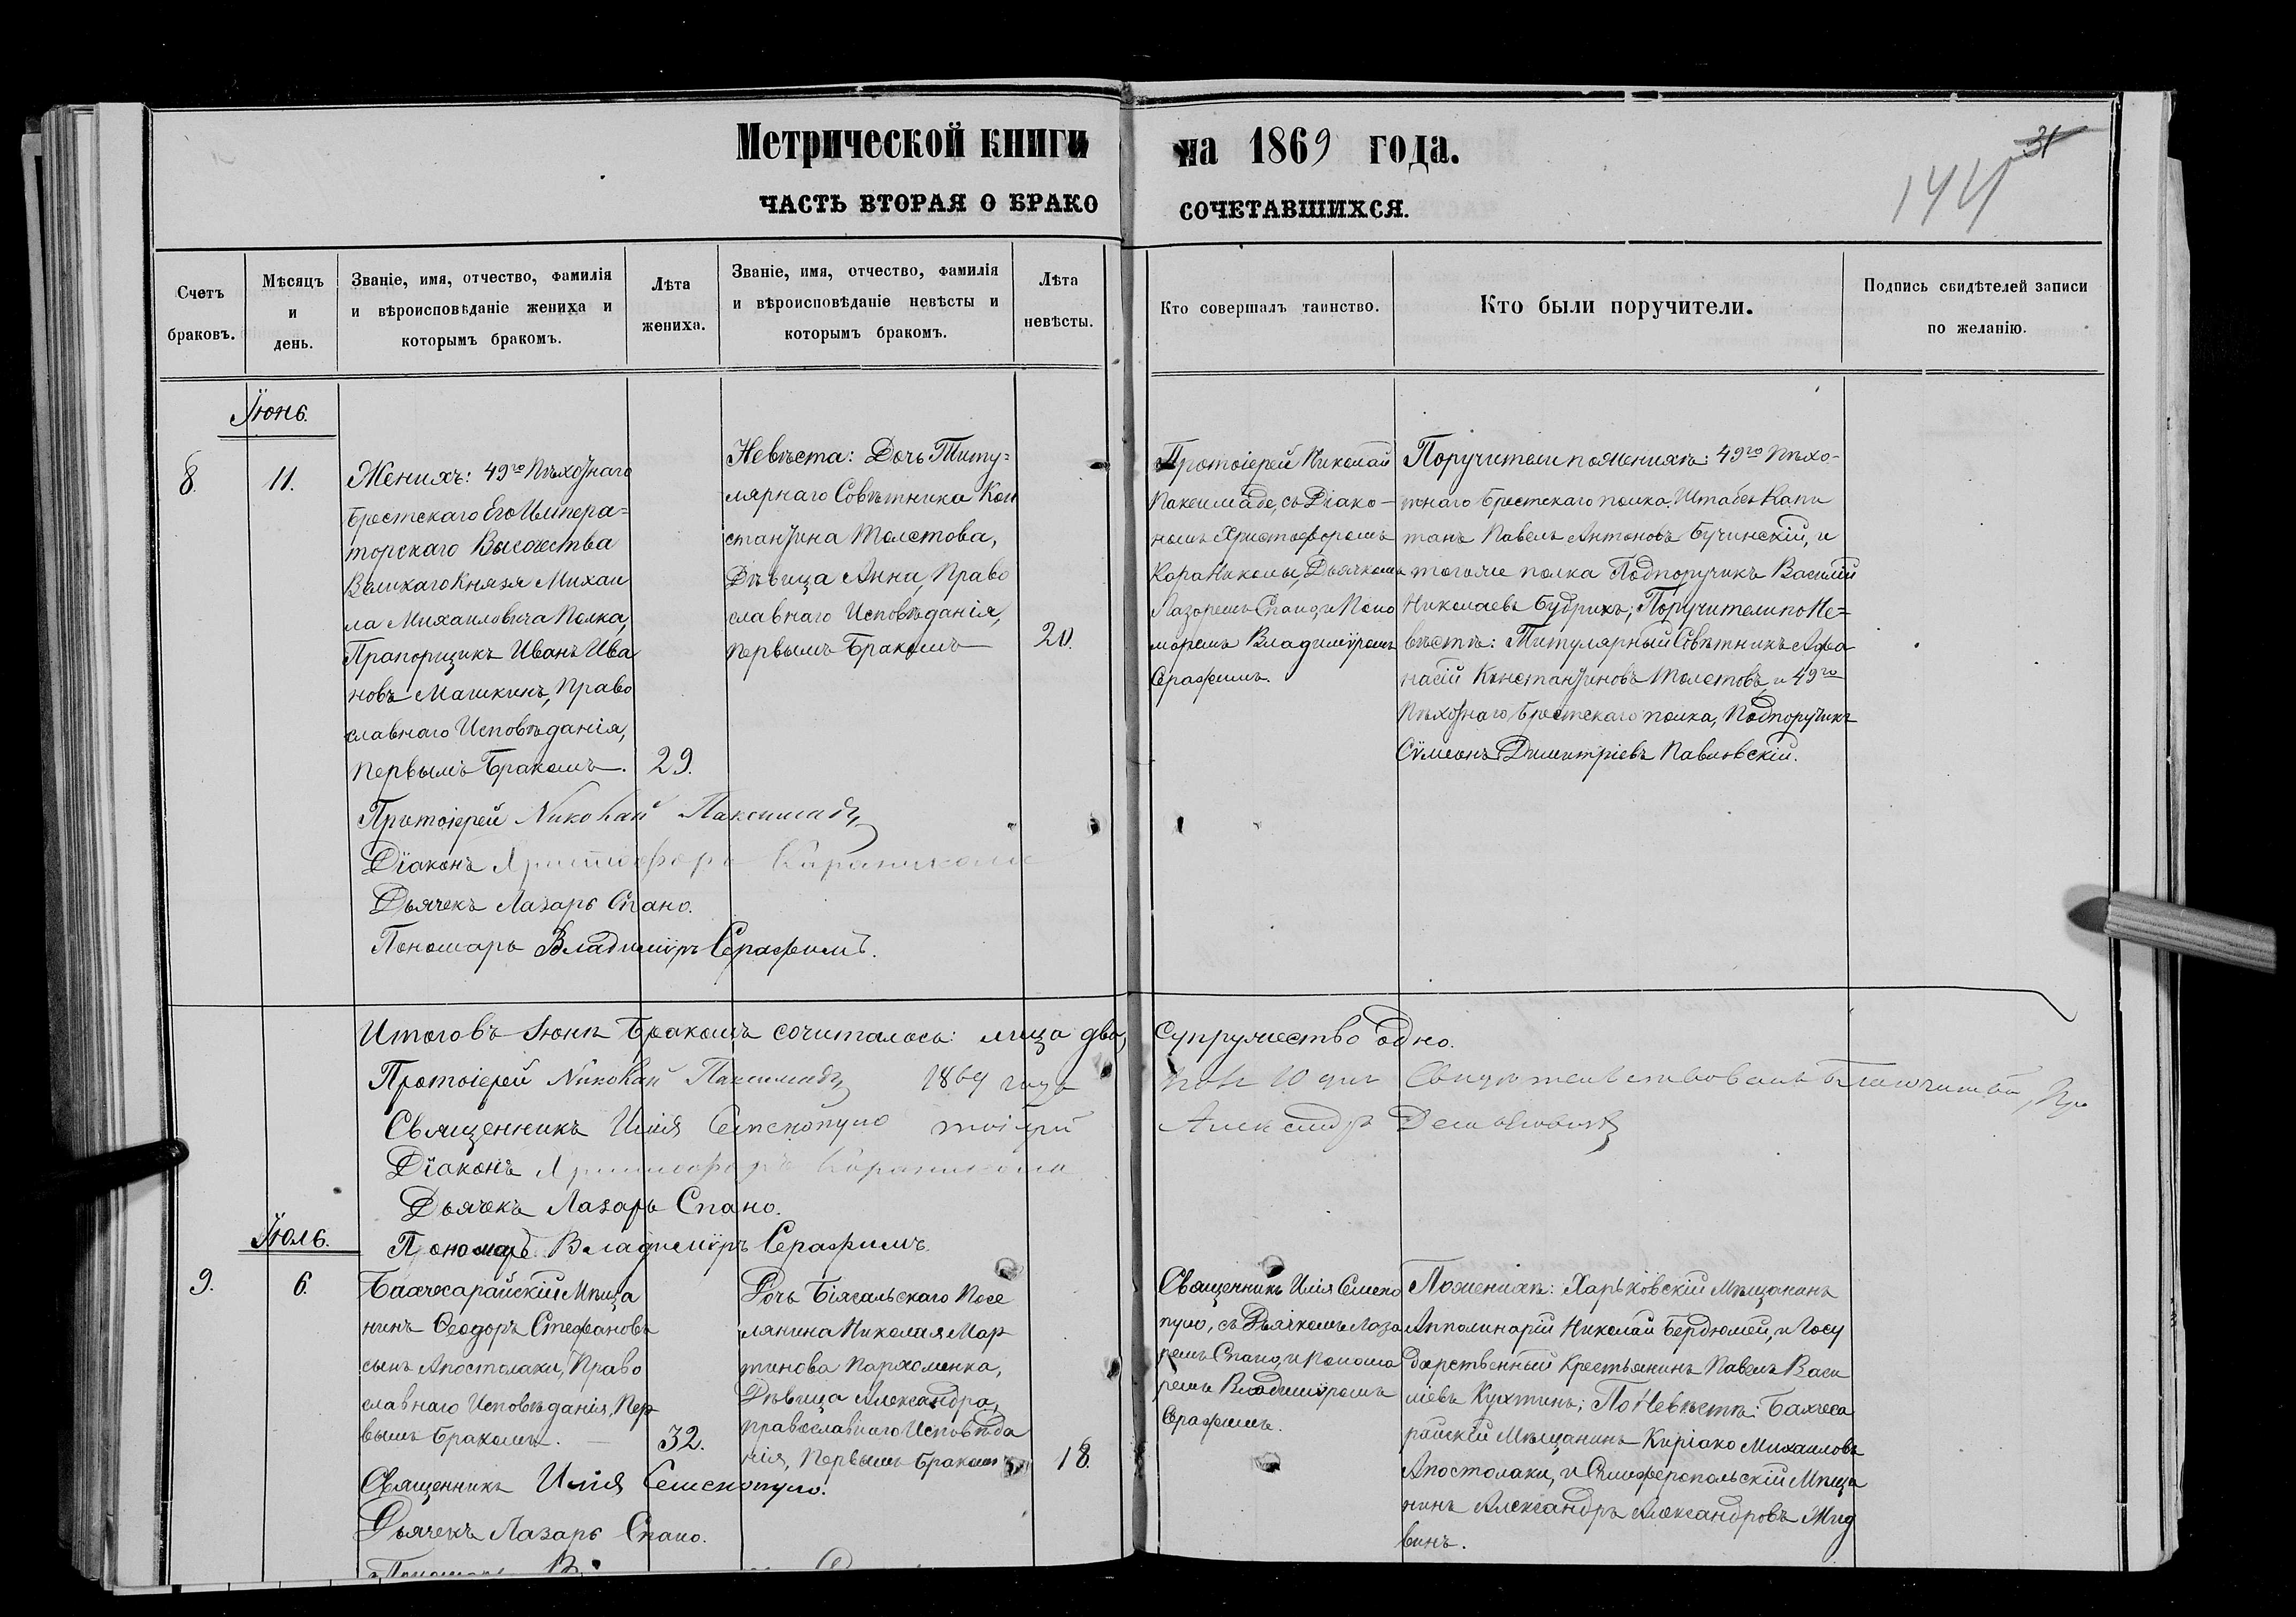 Метрической книги на 1869 года.
31
144
ЧАСТЬ ВТОРАЯ О БРАКО СОЧЕТАВШИХСЯ.
Счетъ браковъ.
Мѣсяцъ и день.
Званіе, имя, отчество, фамилія
и вѣроисповѣданіе жениха и
которымъ бракомъ.
Лѣта жениха.
Званіе, имя, отчество, фамилія
и вѣроисповѣданіе невѣсты и
которымъ бракомъ.
Лѣта невѣсты.
Кто совершалъ таинство.
Кто были поручители.
Подпись свидѣтелей записи
по желанію.
Іюнь.
8.
11.
Женихъ: 49го Пѣхотнаго
Брестскаго Его Импера=
торскаго Высочества
Великаго Князя Михаи
ла Михаиловича Полка,
Прапорщикъ Иванъ Ива
новъ Машкинъ, Право
славнаго Исповѣданія,
первымъ Бракомъ.
29.
Невѣста: Дочь Титу=
лярнаго Совѣтника Кон
стантина Толстова,
Дѣвица Анна, Право
славнаго Исповѣданія,
первымъ Бракомъ
20.
Протоіерей Николай
Паксимаде, съ Діако-
номъ Христофоромъ
Караниколы, Дьячкомъ
Лазаремъ Спано, и Поно
маремъ Владимiромъ
Серафимъ.
Поручители по женихѣ: 49го Пѣхо-
тнаго Брестскаго полка Штабсъ Капи
танъ Павелъ Антоновъ Бучинскій, и
тогоже полка Подпоручикъ Василій
Николаевъ Будрикъ; Поручители по Не=
вѣстѣ: Титулярный Совѣтникъ Афа
насій Константиновъ Толстовъ, и 49го
Пѣхотнаго Брестскаго полка, Подпоручикъ
Сѵмеонъ Димитріевъ Павловскій.
Протоіерей Николай Паксимади
Діаконъ Христофоръ Караниколи
Дьячекъ Лазарь Спано.
Пономарь Владимiръ Серафимъ.
Итого въ Іюнѣ Бракомъ сочиталось: лица два, супружество одно.
Протоіерей Николай Паксимади 1869 года 10 дня Свидѣтельствовалъ Благочинный, Про
Священникъ Илія Семенопуло тоіерей Александръ
Діаконъ Христофоръ Караниколи
Дьячекъ Лазарь Спано.
Пономарь Владимiръ Серафимъ.
Іюль.
9.
6.
Бахчисарайскій Мѣща
нинъ Ѳеодоръ Стефановъ
сынъ Апостолаки, Право
славнаго Исповѣданія, Пер
вымъ Бракомъ.
32.
Дочь Біясальскаго Посе
лянина Николая Мар
тинова Пархоменка,
Дѣвица Александра,
православнаго Исповѣда
нія, Первымъ Бракомъ
18.
Священникъ Илія Семено
пуло, съ Дьячкомъ Лаза
ремъ Спано, и Понома
ремъ Владимiромъ
Серафимъ.
По женихѣ: Харьковскій Мѣщанинъ
Апполинарій Николай Бердюмей, и Госу
дарственный Крестьянинъ Павелъ Васи
ліевъ Кухтинъ; По Невѣстѣ: Бахчиса
райскій Мѣщанинъ Киріако Михаиловъ
Апостолаки, и Симферопольскій Мѣща
нинъ Александръ Александровъ Мид
винъ.
Священникъ Илія Семенопуло.
Дьячекъ Лазарь Спано.